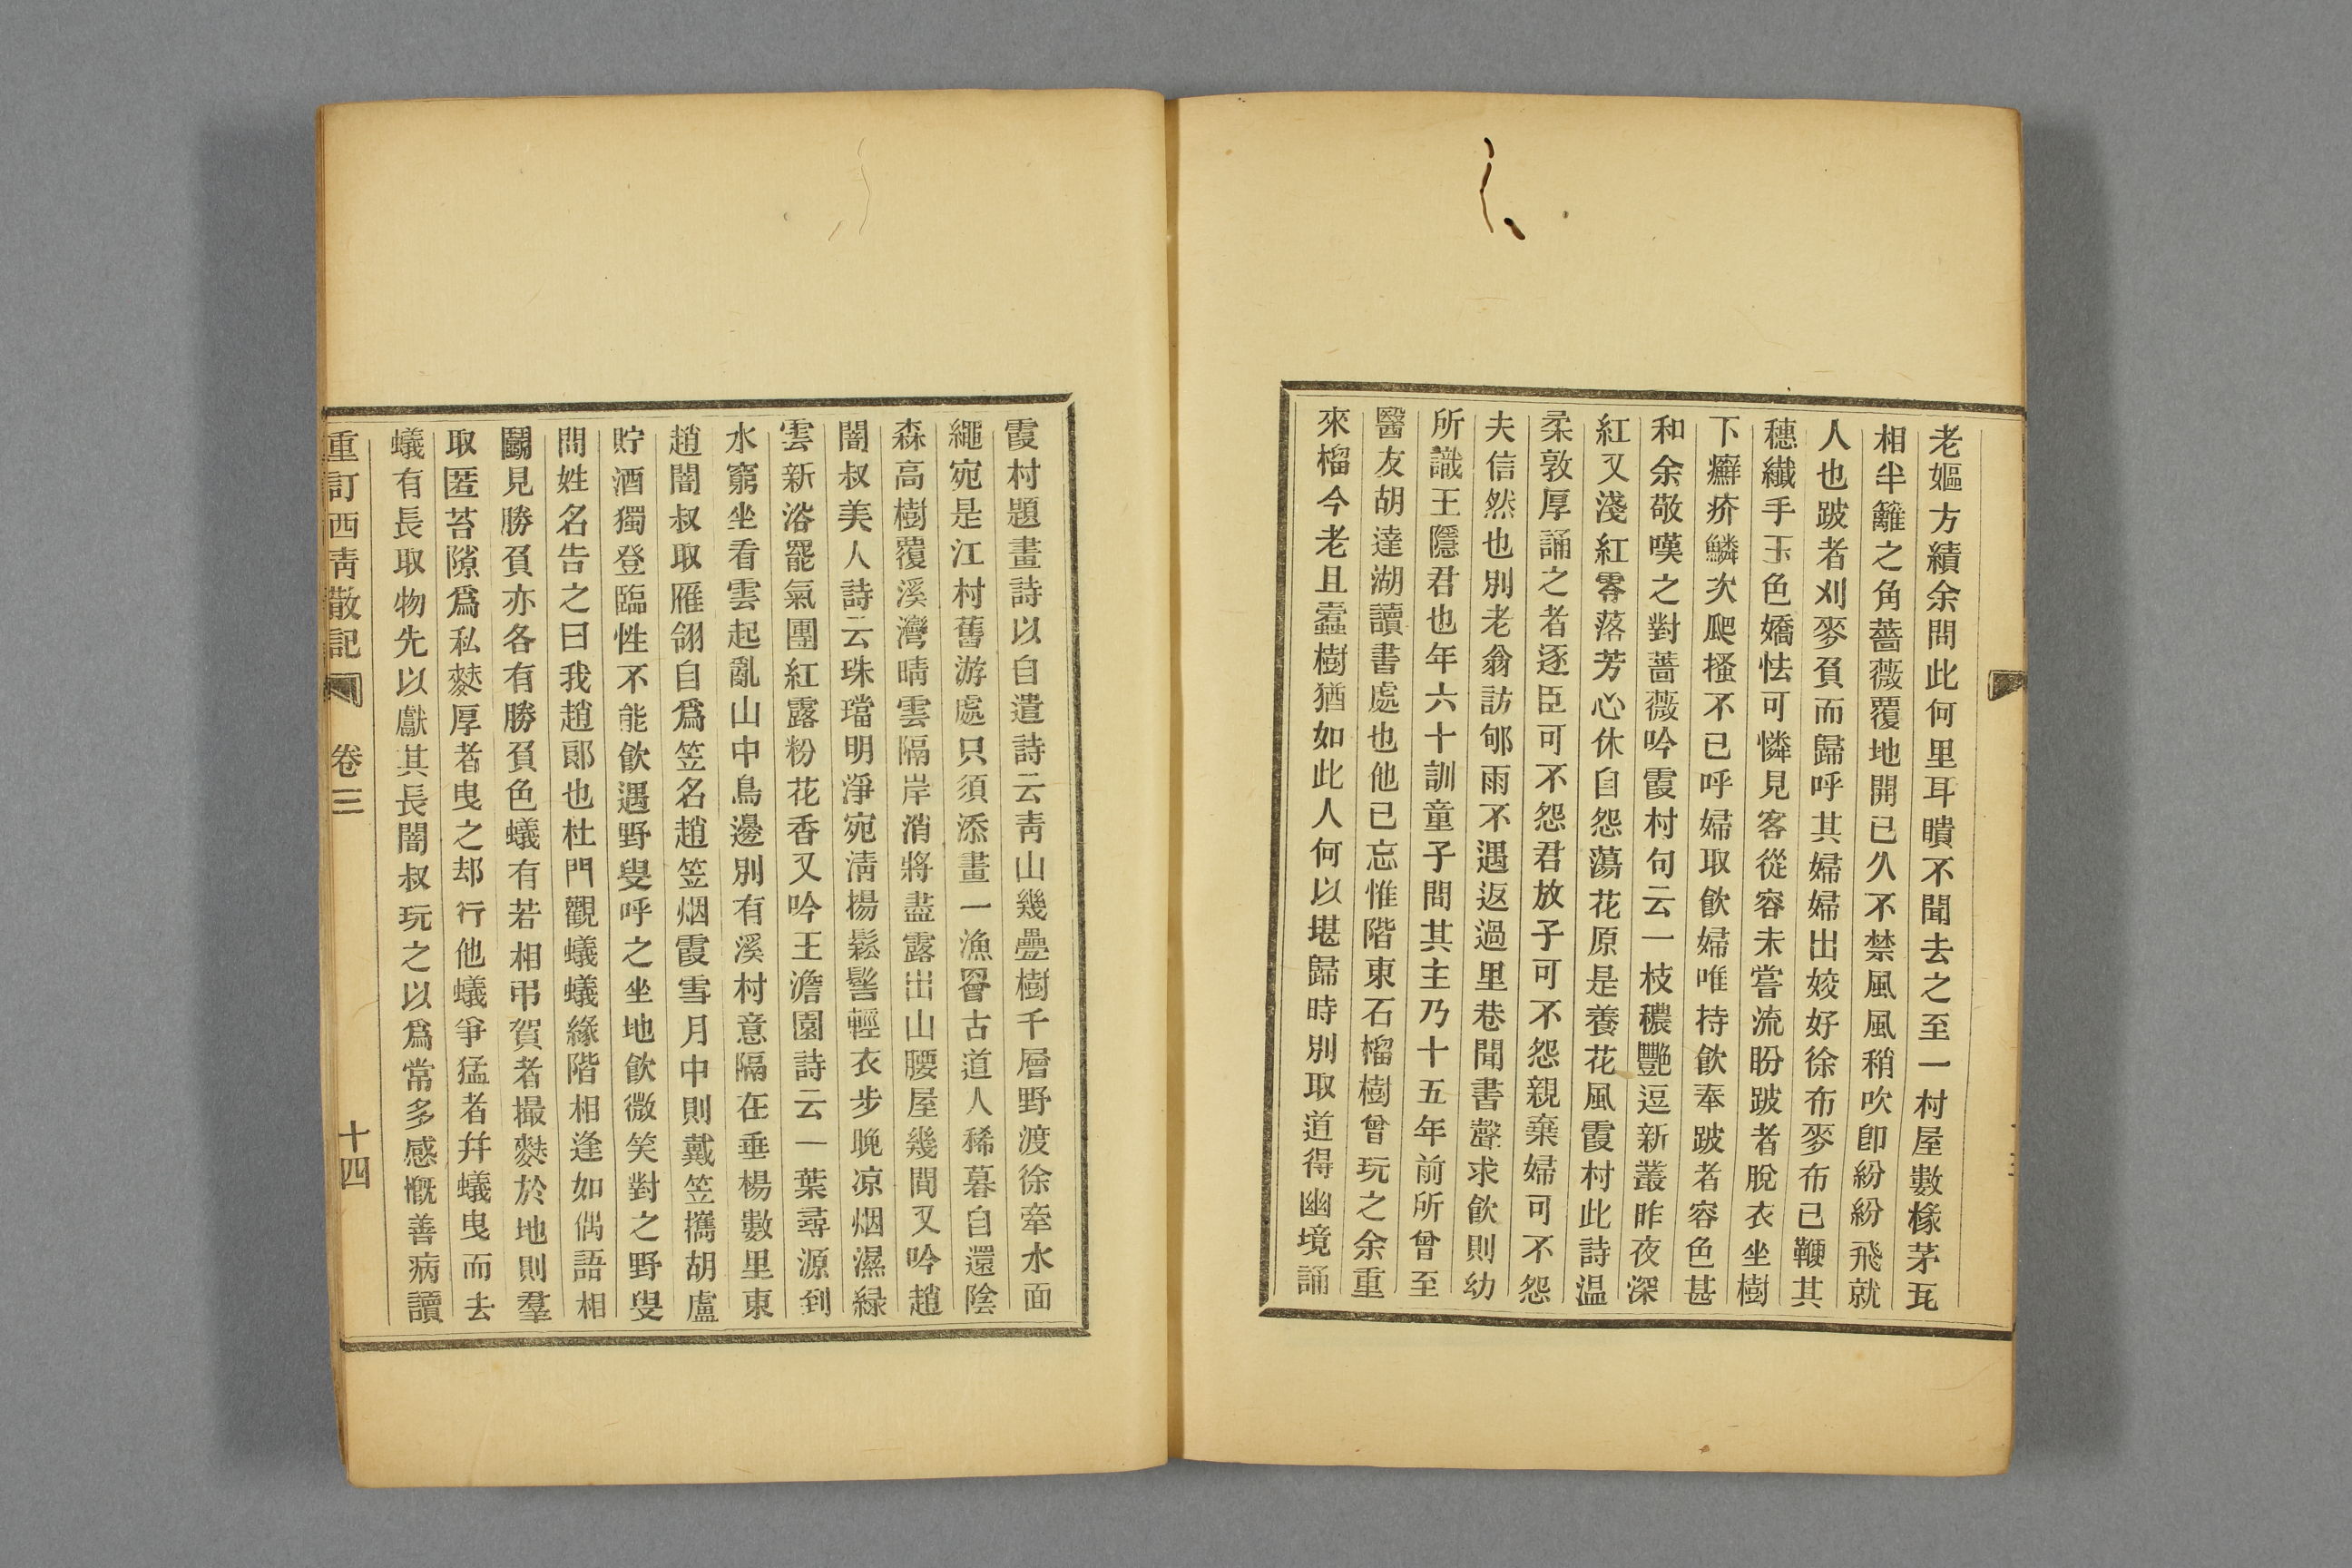 老嫗方績余問此何里耳聵不聞去之至一村屋數椽茅瓦
相半籬之角薔薇覆地開已久不禁風風稍吹卽紛紛飛就
人也跛者刈麥負而歸呼其婦婦出姣好徐布麥布已鞭其
穗纖手玉色嬌怯可憐見客從容未嘗流盼跛者脫衣坐樹
下癬疥鱗次爬搔不已呼婦取飮婦唯持飮奉跛者容色甚
和余敬嘆之對薔薇吟霞村句云一枝穠艷逗新叢昨夜深
紅又淺紅零落芳心休自怨蕩花原是養花風霞村此詩温
柔敦厚誦之者逐臣可不怨君放子可不怨親棄婦可不怨
夫信然也別老翁訪郇雨不遇返過里巷聞書聲求飮則幼
所識王隱君也年六十訓童子問其主乃十五年前所曾至
醫友胡達湖讀書處也他已忘惟階東石榴樹曾玩之余重
來榴今老且蠹樹猶如此人何以堪歸時別取道得幽境誦
霞村題畫詩以自遣詩云靑山幾疊樹千層野渡徐牽水面
繩宛是江村舊游處只須添畫一漁罾古道人稀暮自還陰
森高樹覆溪灣晴雲隔岸消將盡露出山腰屋幾間又吟趙
闇叔美人詩云珠璫明淨宛淸揚鬆髻輕衣步晚凉烟濕緑
雲新浴罷氣團紅露粉花香又吟王澹園詩云一葉尋源到
水窮坐看雲起亂山中鳥邊別有溪村意隔在垂楊數里東
趙闇叔取雁翎自爲笠名趙笠烟霞雪月中則戴笠攜胡盧
貯酒獨登臨性不能飮遇野叟呼之坐地飮微笑對之野叟
問姓名告之曰我趙郞也杜門觀蟻蟻緣階相逢如偶語相
鬭見勝負亦各有勝負色蟻有若相弔賀者撮麩於地則羣
取匿苔隙爲私麩厚者曳之却行他蟻爭猛者幷蟻曳而去
蟻有長取物先以獻其長闇叔玩之以爲常多感慨善病讀
重訂西靑散記 卷三 十四